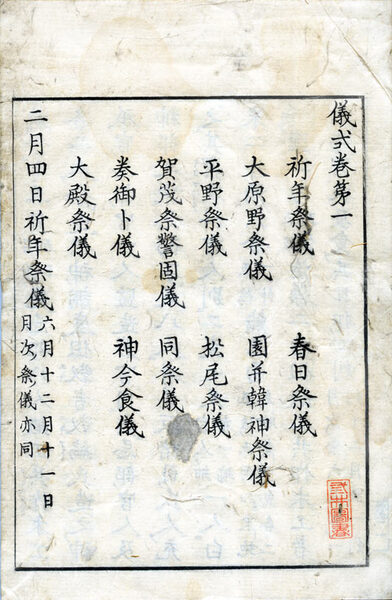 儀式卷第一
祈年祭儀　春日祭儀
大原野祭儀　園并韓神祭儀
平野祭儀　松尾祭儀
賀茂祭警固儀　同祭儀
奏御卜儀　神今食儀
大殿祭儀
二月四日祈年祭儀
六月十二月十一日
月次祭儀亦同